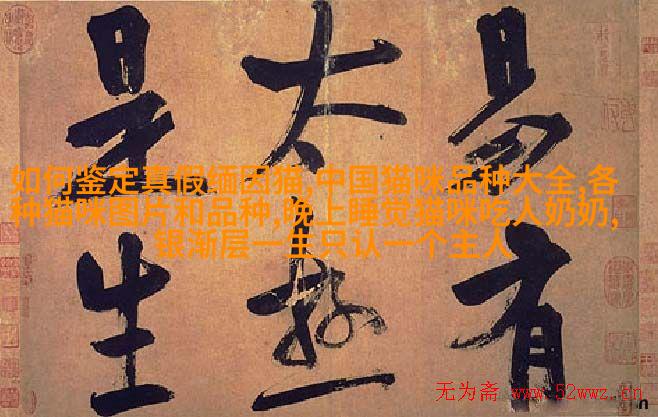 易有
太極
是生
如何鉴定真假缅因猫,中国猫咪品种大全,各
种猫咪图片和品种,晚上睡觉猫咪吃人奶奶,
银渐层一生只认一个主人
无为斋 www.52wwz.cn
n